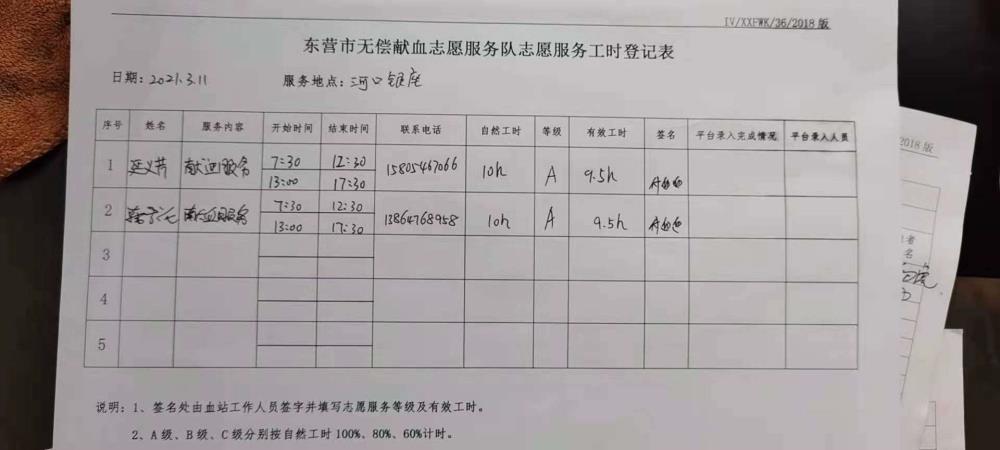 IV/XXFWK/36/2018 版
东营市无偿献血志愿服务队志愿服务工时登记表
日期：2021.3.11 服务地点：河口银座
序号 姓名 服务内容 开始时间 结束时间 联系电话 自然工时 等级 有效工时 签名 平台录入完成情况 平台录入人员
1 献血服务 7:30 12:30 15805467066 10h A 9.5h
13:00 17:30
2 献血服务 7:30 12:30 13864768958 10h A 9.5h
13:00 17:30
3
4
5
说明：1、签名处由血站工作人员签字并填写志愿服务等级及有效工时。
2、A 级、B 级、C 级分别按自然工时 100%、80%、60%计时。
2018 版
者
名